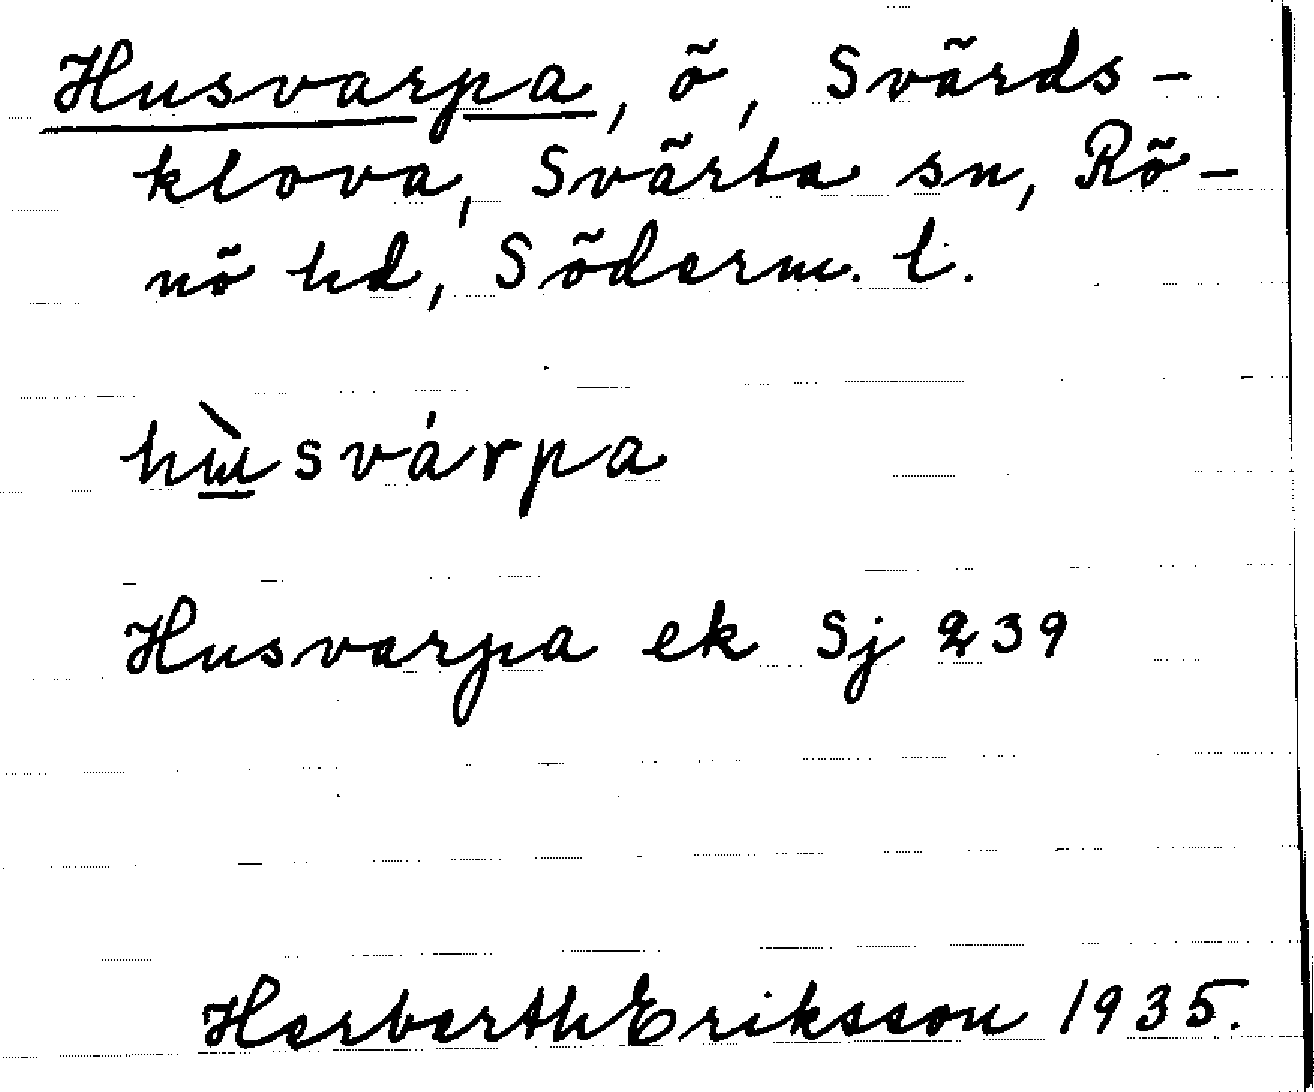 Husvarpa, ö, Svärds-
klova, Svärta sn, Rö-
nö hd, Söderm. l.
hɯ̀svárpa
Husvarpa ek Sj 239
Herberth Eriksson 1935.